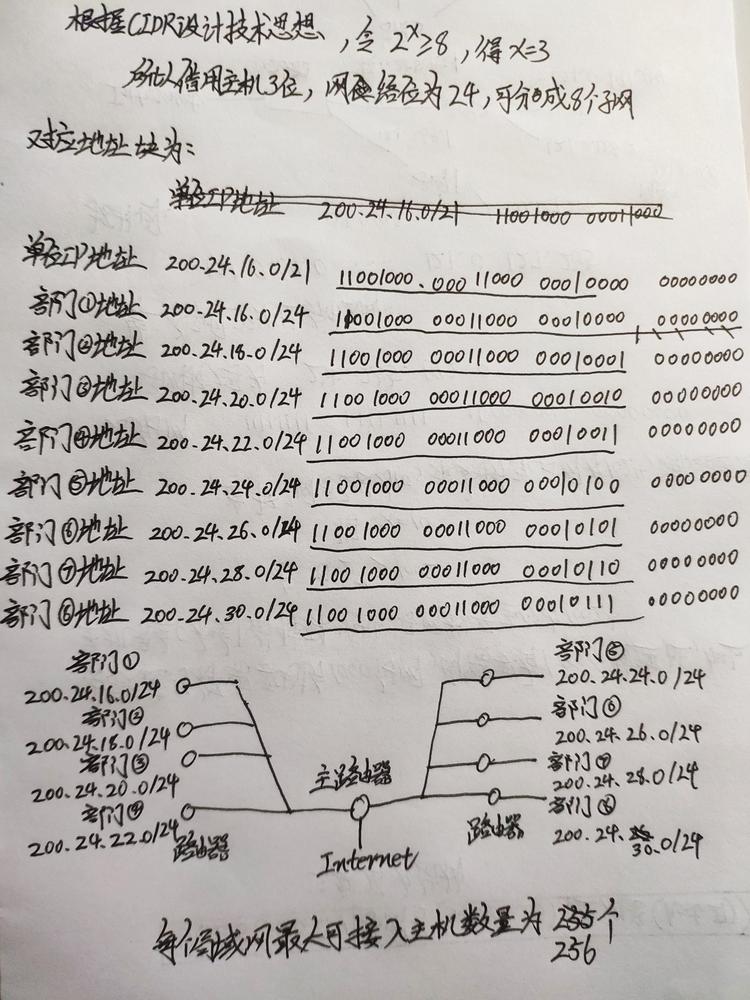 根据CIDR设计技术思想，令 2^x≥8，得x=3
所以借用主机3位，网络位为24，可分成8个子网
对应地址块为：
单位IP地址 200.24.16.0/21 11001000 00011000
单位IP地址 200.24.16.0/21 11001000.00011000 00010000 00000000
部门①地址 200.24.16.0/24 11001000 00011000 00010000 00000000
部门②地址 200.24.18.0/24 11001000 00011000 00010001 00000000
部门③地址 200.24.20.0/24 11001000 00011000 00010010 00000000
部门④地址 200.24.22.0/24 11001000 00011000 00010011 00000000
部门⑤地址 200.24.24.0/24 11001000 00011000 00010100 00000000
部门⑥地址 200.24.26.0/24 11001000 00011000 00010101 00000000
部门⑦地址 200.24.28.0/24 11001000 00011000 00010110 00000000
部门⑧地址 200.24.30.0/24 11001000 00011000 00010111 00000000
部门①
200.24.16.0/24
部门②
200.24.18.0/24
部门③
200.24.20.0/24
部门④
200.24.22.0/24
路由器
主路由器
Internet
部门⑤
200.24.24.0/24
部门⑥
200.24.26.0/24
部门⑦
200.24.28.0/24
部门⑧
200.24.30.0/24
路由器
每个局域网最大可接入主机数量为 256个